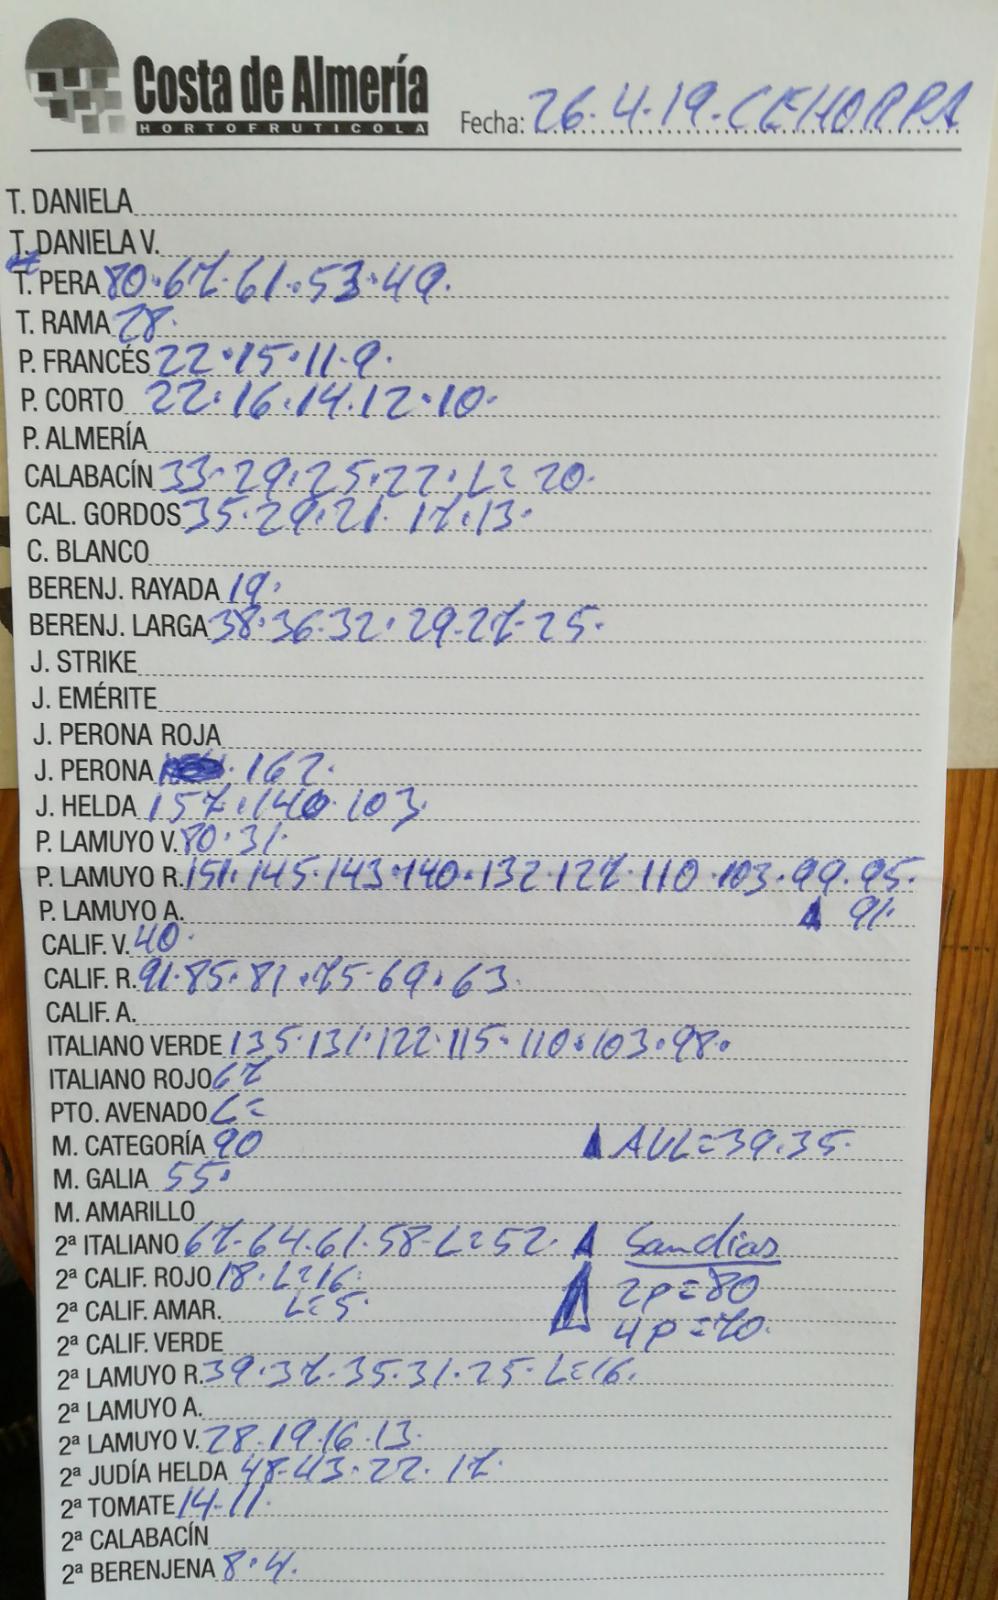 Costa de Almería
HORTOFRUTICOLA
Fecha: 26.4.19.CEHORPA
T. DANIELA
T. DANIELA V.
T. PERA 80.67.61.53.49.
T. RAMA 28.
P. FRANCÉS 22.15.11.9.
P. CORTO 22.16.14.12.10.
P. ALMERÍA
CALABACÍN 33.29.25.22.L=20.
CAL. GORDOS 35.29.21.17.13.
C. BLANCO
BERENJ. RAYADA 19.
BERENJ. LARGA 38.36.32.29.27.25.
J. STRIKE
J. EMÉRITE
J. PERONA ROJA
J. PERONA .162.
J. HELDA 157.140.103.
P. LAMUYO V. 80.31.
P. LAMUYO R. 151.145.143.140.132.127.110.103.99.95.
P. LAMUYO A. 91.
CALIF. V. 40.
CALIF. R. 91.85.81.75.69.63.
CALIF. A.
ITALIANO VERDE 135.131.122.115.110.103.98.
ITALIANO ROJO 67
PTO. AVENADO L=
M. CATEGORÍA 90 AVL=39.35.
M. GALIA 55.
M. AMARILLO
2ª ITALIANO 67.64.61.58.L=52. Sandias
2ª CALIF. ROJO 18.L=16. 2P=80
2ª CALIF. AMAR. L=5. 4P=70.
2ª CALIF. VERDE
2ª LAMUYO R. 39.37.35.31.25.L=16.
2ª LAMUYO A.
2ª LAMUYO V. 28.19.16.13.
2ª JUDÍA HELDA 48.43.22.17.
2ª TOMATE 14.11.
2ª CALABACÍN
2ª BERENJENA 8.4.